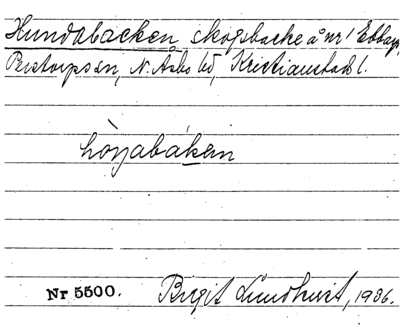 Hundabacken, skogsbacke å nr 1 Ebbarp,
Perstorps sn, N. Åsbo hd, Kristianstads l.
Nr 5500. Birgit Lundkvist, 1936.